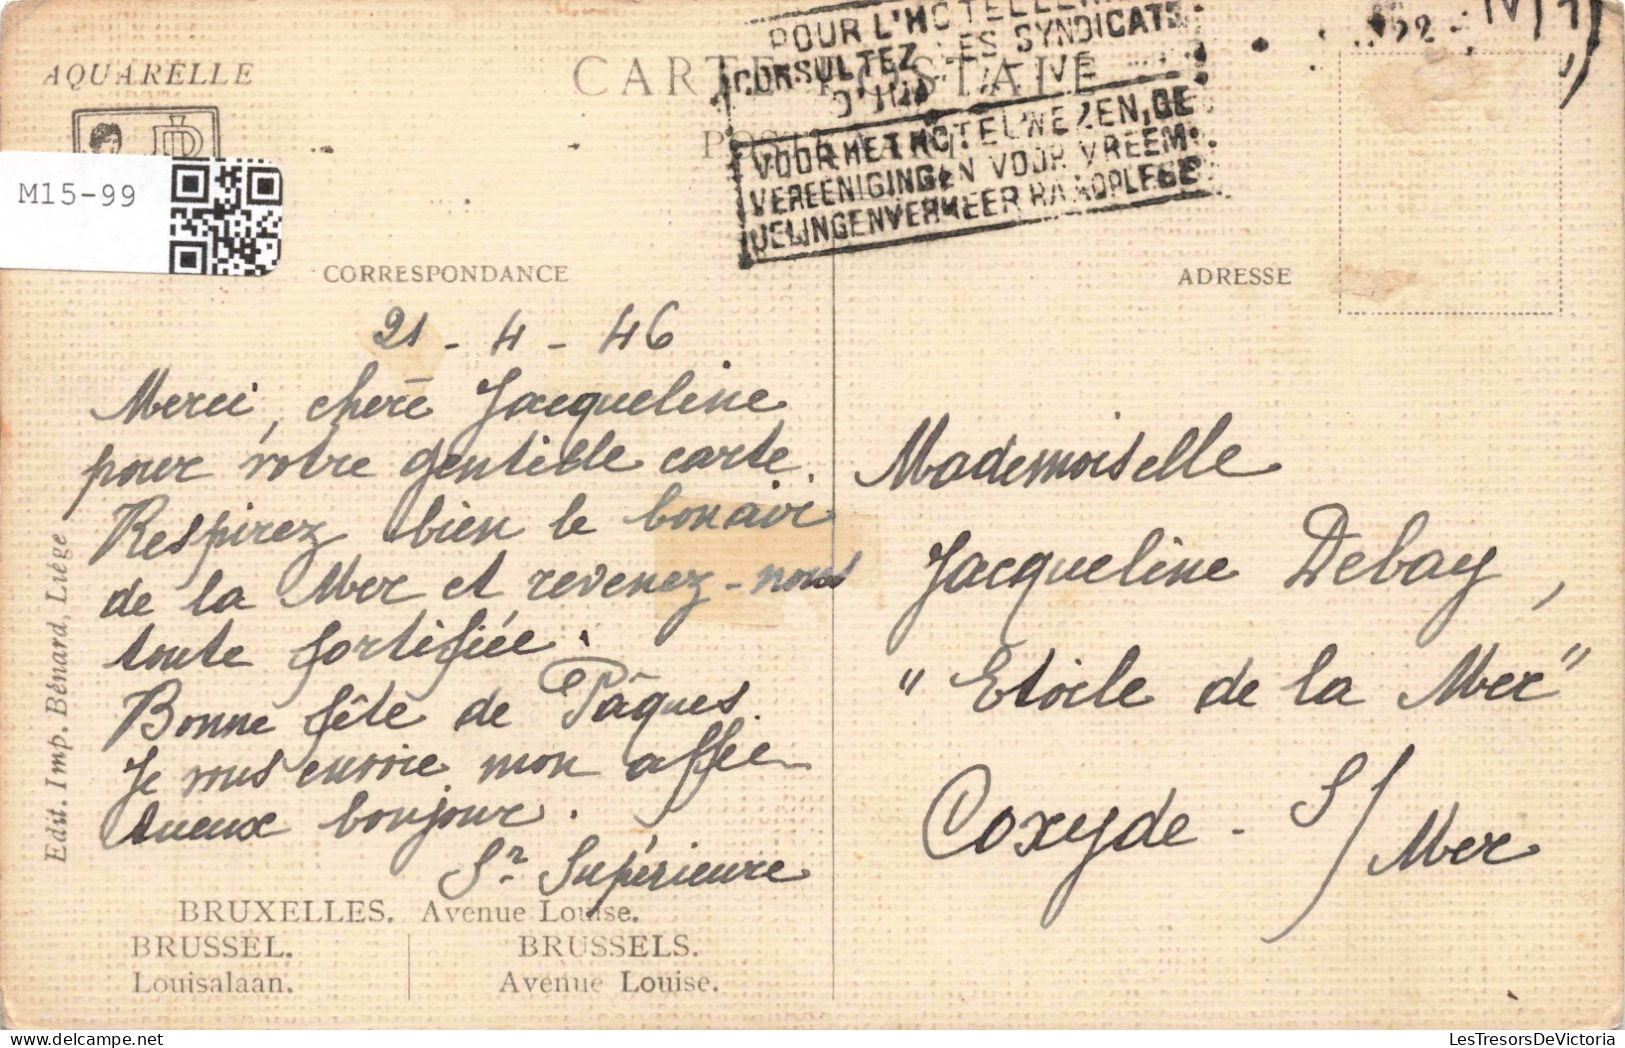 AQUARELLE
CARTE POSTALE
POUR L'HOTELLERIE
CONSULTEZ LES SYNDICATS
VOOR HET HOTELWEZEN, DE
VEREENIGINGEN VOOR VREEM-
DELINGENVERKEER RAADPLEGE
M15-99
CORRESPONDANCE
ADRESSE
21 - 4 - 46
Merci, chère Jacqueline
pour votre gentille carte.
Respirez bien le bon air
de la Mer et revenez-nous
toute fortifiée.
Bonne fête de Pâques.
Je vous envoie mon affec-
tueux bonjour.
Sr Supérieure
Mademoiselle
Jacqueline Debay,
"Etoile de la Mer"
Coxyde - S/ Mer
Edit. Imp. Bénard, Liége
BRUXELLES. Avenue Louise.
BRUSSEL. BRUSSELS.
Louisalaan. Avenue Louise.
LesTresorsDeVictoria